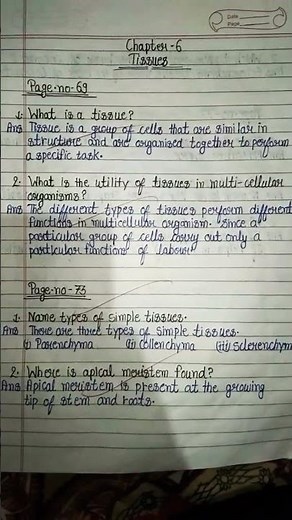 Date
Page
Chapter-6
Tissues
Page-no-69
1. What is a tissue?
Ans Tissue is a group of cells that are similar in
structure and are organised together to perform
a specific task.
2. What is the utility of tissues in multi-cellular
organisms?
Ans The different types of tissues perform different
functions in multicellular organism. Since a
particular group of cells carry out only a
particular functions of labour.
Page-no-73
1. Name types of simple tissues.
Ans There are three types of simple tissues.
(i) Parenchyma (ii) Collenchyma (iii) Sclerenchym
2. Where is apical meristem found?
Ans Apical meristem is present at the growing
tip of stem and roots.